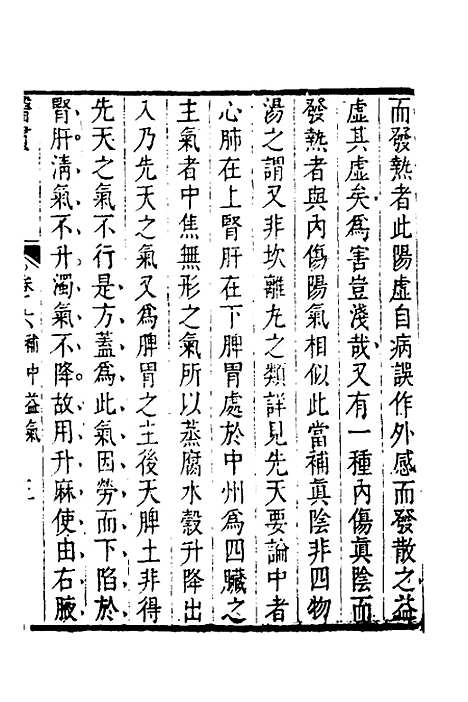 而發熱者此陽虛自病誤作外感而發散之益
虛其虛矣為害豈淺哉又有一種內傷眞陰而
發熱者與內傷陽氣相似此當補眞陰非四物
湯之謂又非坎離丸之類詳見先天要論中者
心肺在上腎肝在下脾胃處於中州為四臟之
主氣者中焦無形之氣所以蒸腐水穀升降出
入乃先天之氣又為脾胃之主後天脾土非得
先天之氣不行是方蓋為此氣因勞而下陷於
腎肝清氣不升濁氣不降故用升麻使由右腋
卷六 補中益氣